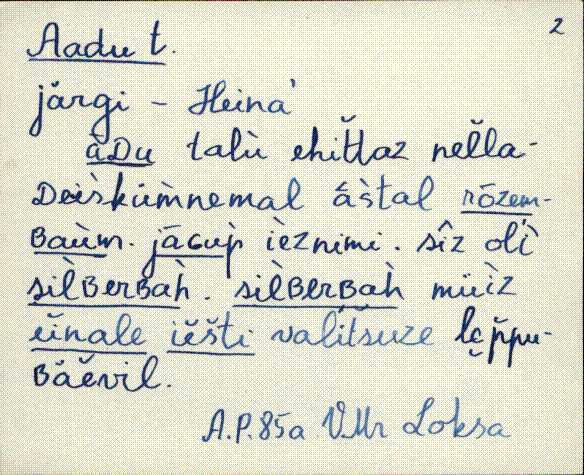 2
Aadu t.
järgi – Heina'
àDu talù ehìt̆taz nel̆la-
Deìskümnemal áàstal rōzem-
Baùm. jācup̀ ìeznimi. sîz olì
sìlBerBah̀. sìlBerBah̀ müìz
eĭnale iĕšti valit̆suze lep̆pu-
Bäĕvil.
A.P. 85a VMr Loksa